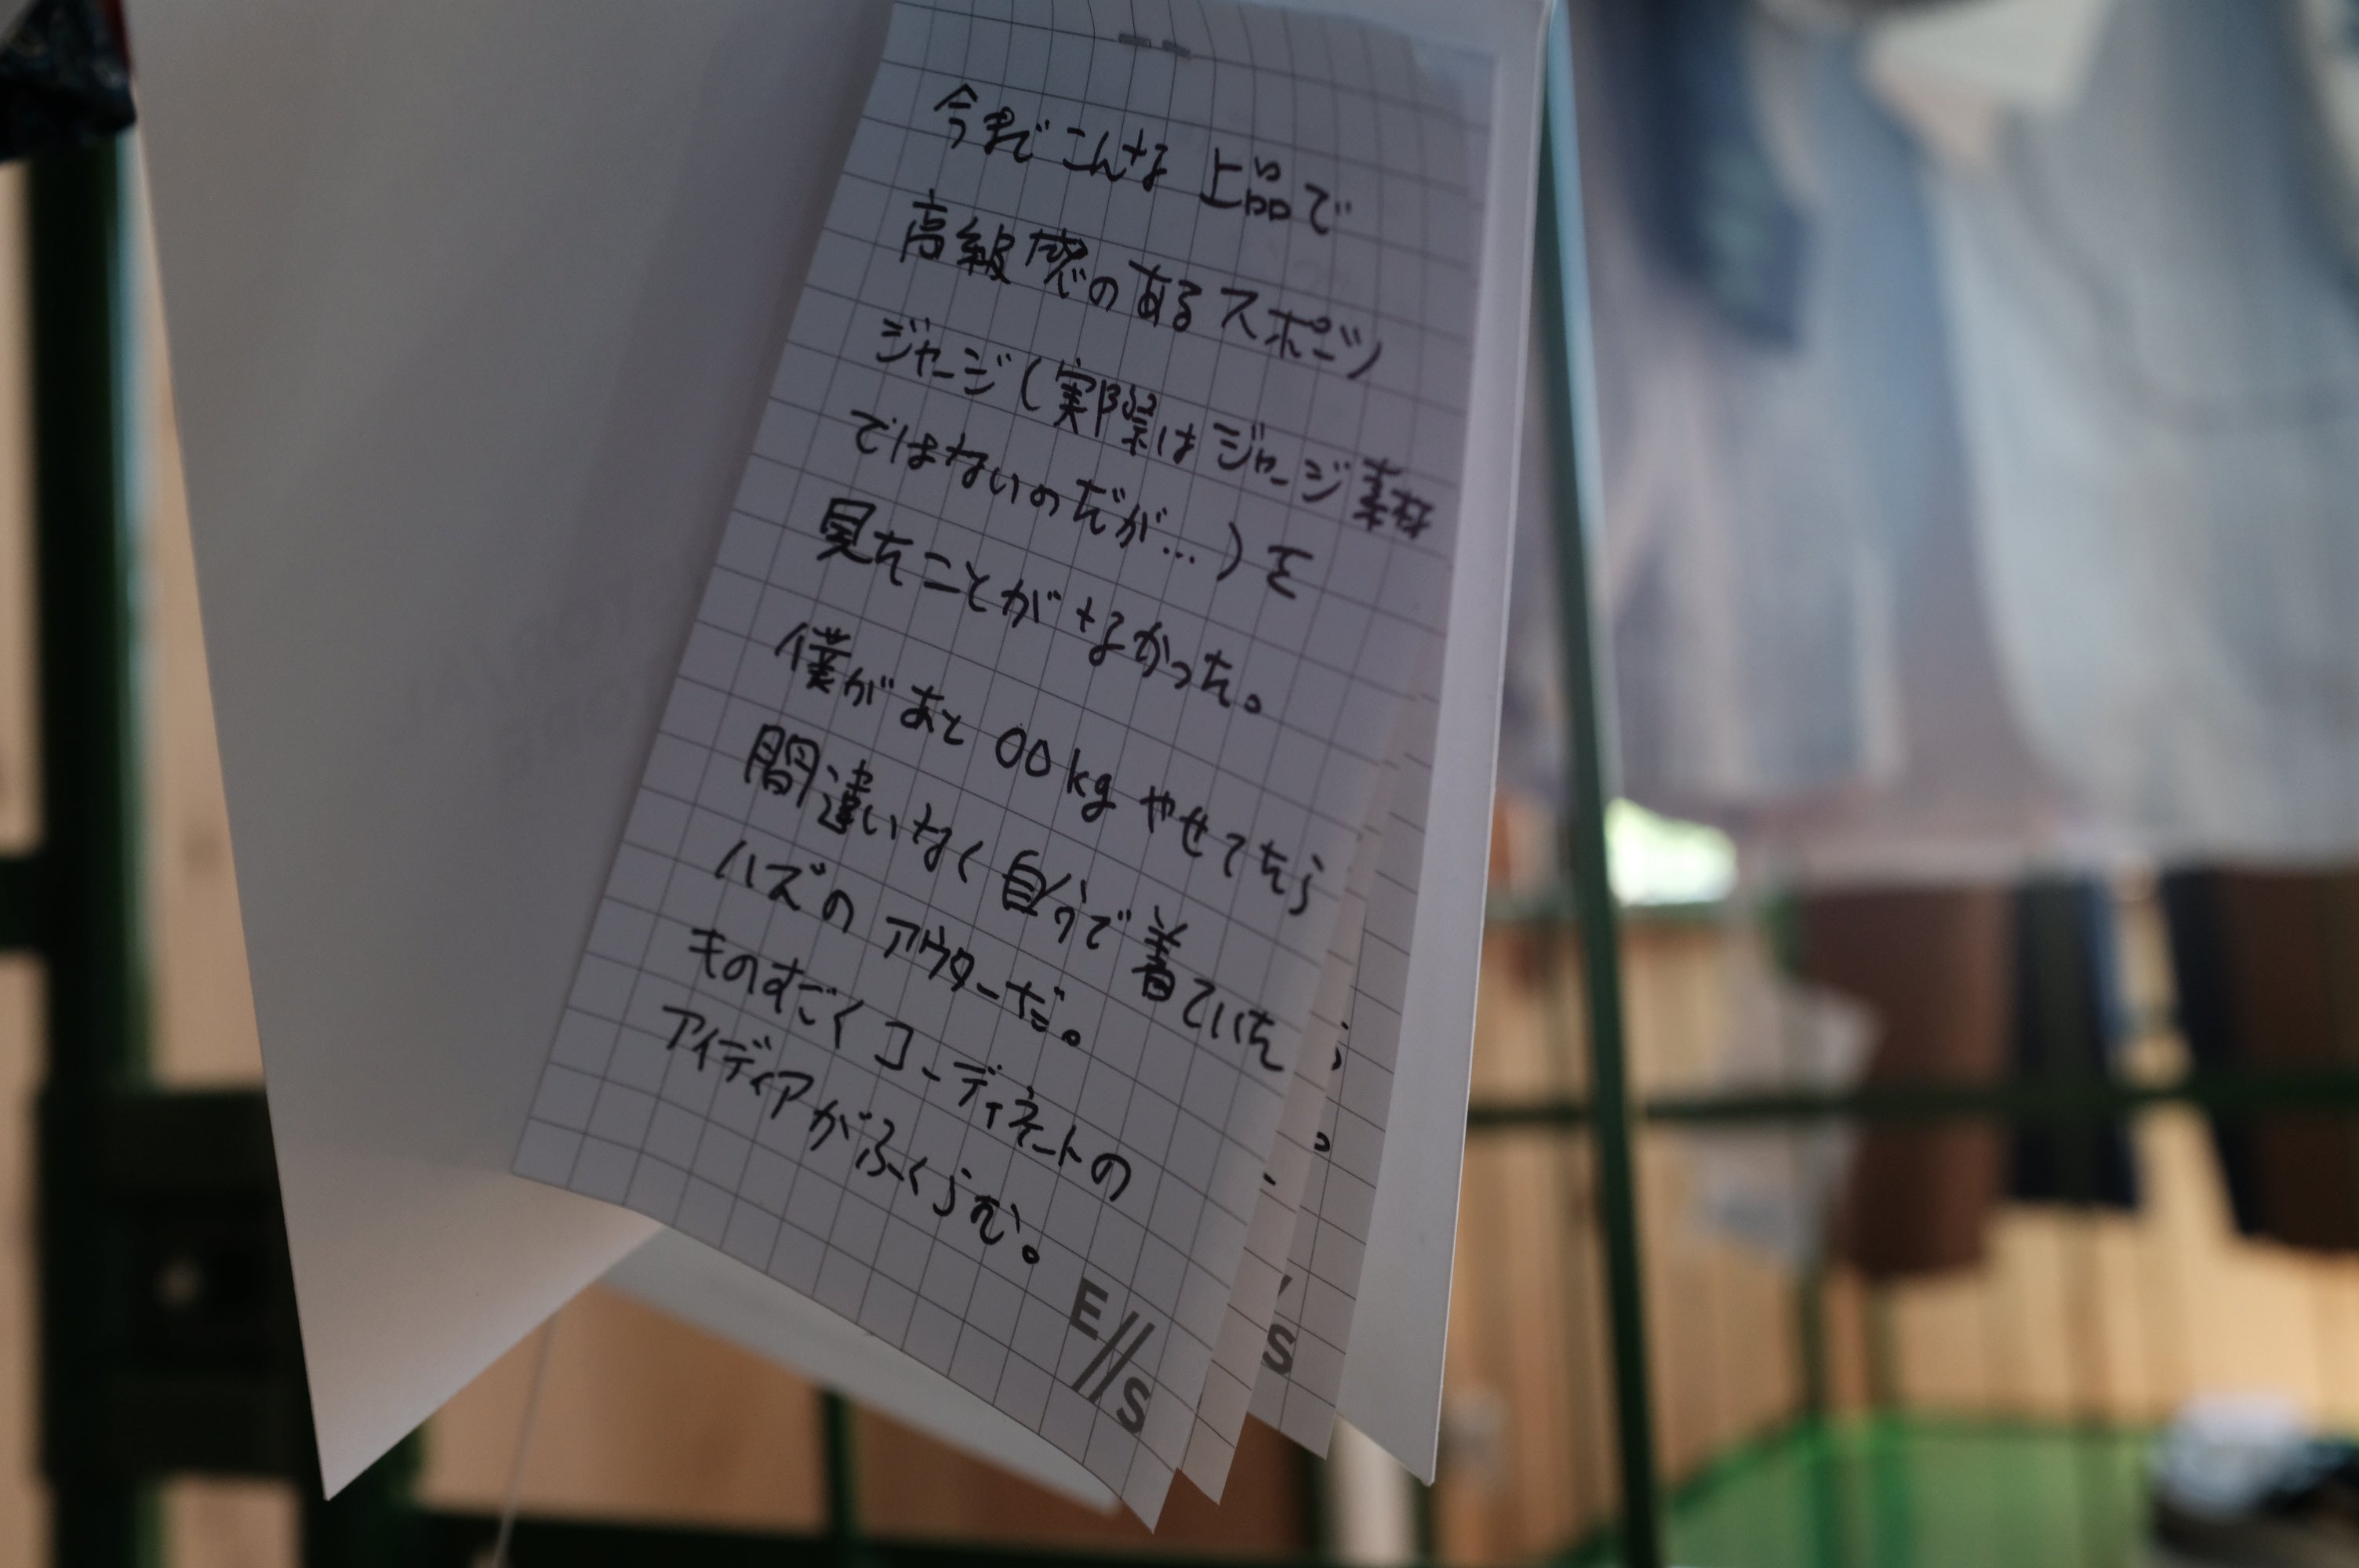 今までこんな上品で
高級感のあるスポーツ
ジャージ(実際はジャージ素材
ではないのだが…)を
見たことがなかった。
僕があと〇〇kgやせてたら
間違いなく自分で着ていた
ハズのアウターだ。
ものすごくコーディネートの
アイディアがふくらむ。
E//S
S